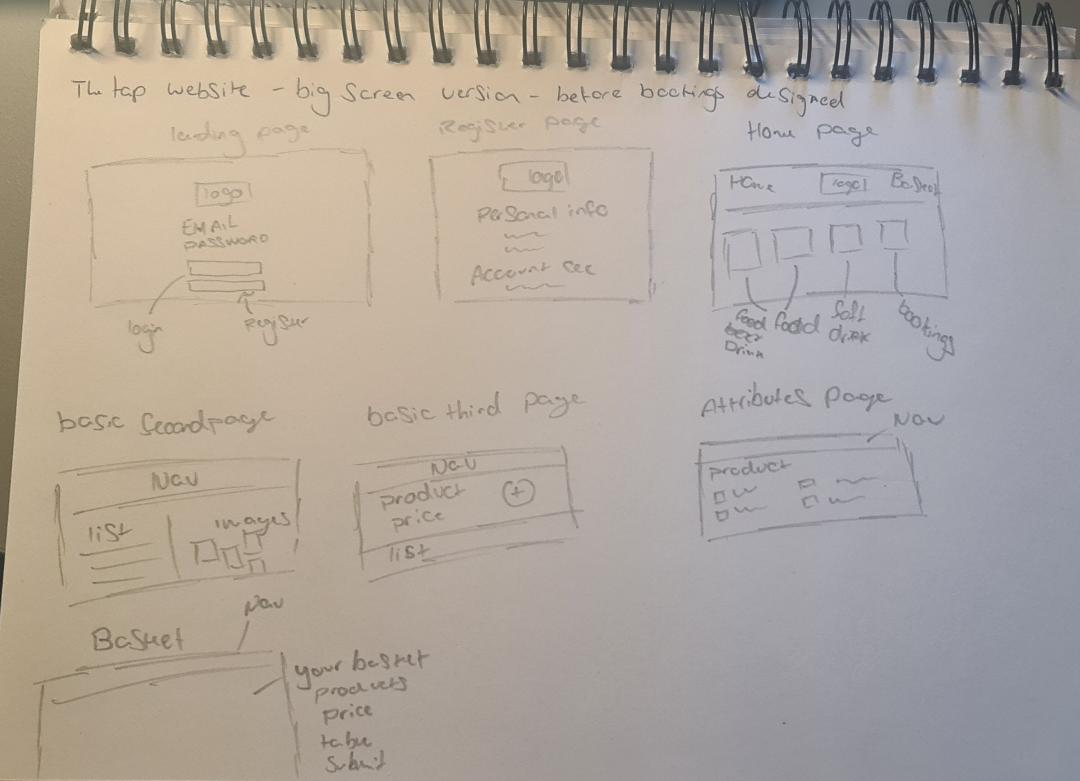 The tap website - big screen version - before bookings designed
landing page
logo
EMAIL
PASSWORD
login
Register
Register page
logo
Personal info
Account sec
Home page
Home logo Basket
food
beer
Drink
food
Soft
drink
bookings
basic second page
Nav
list
images
basic third page
Nav
product
price
+
list
Attributes page
Nav
product
Basket
Nav
your basket
products
price
table
Submit